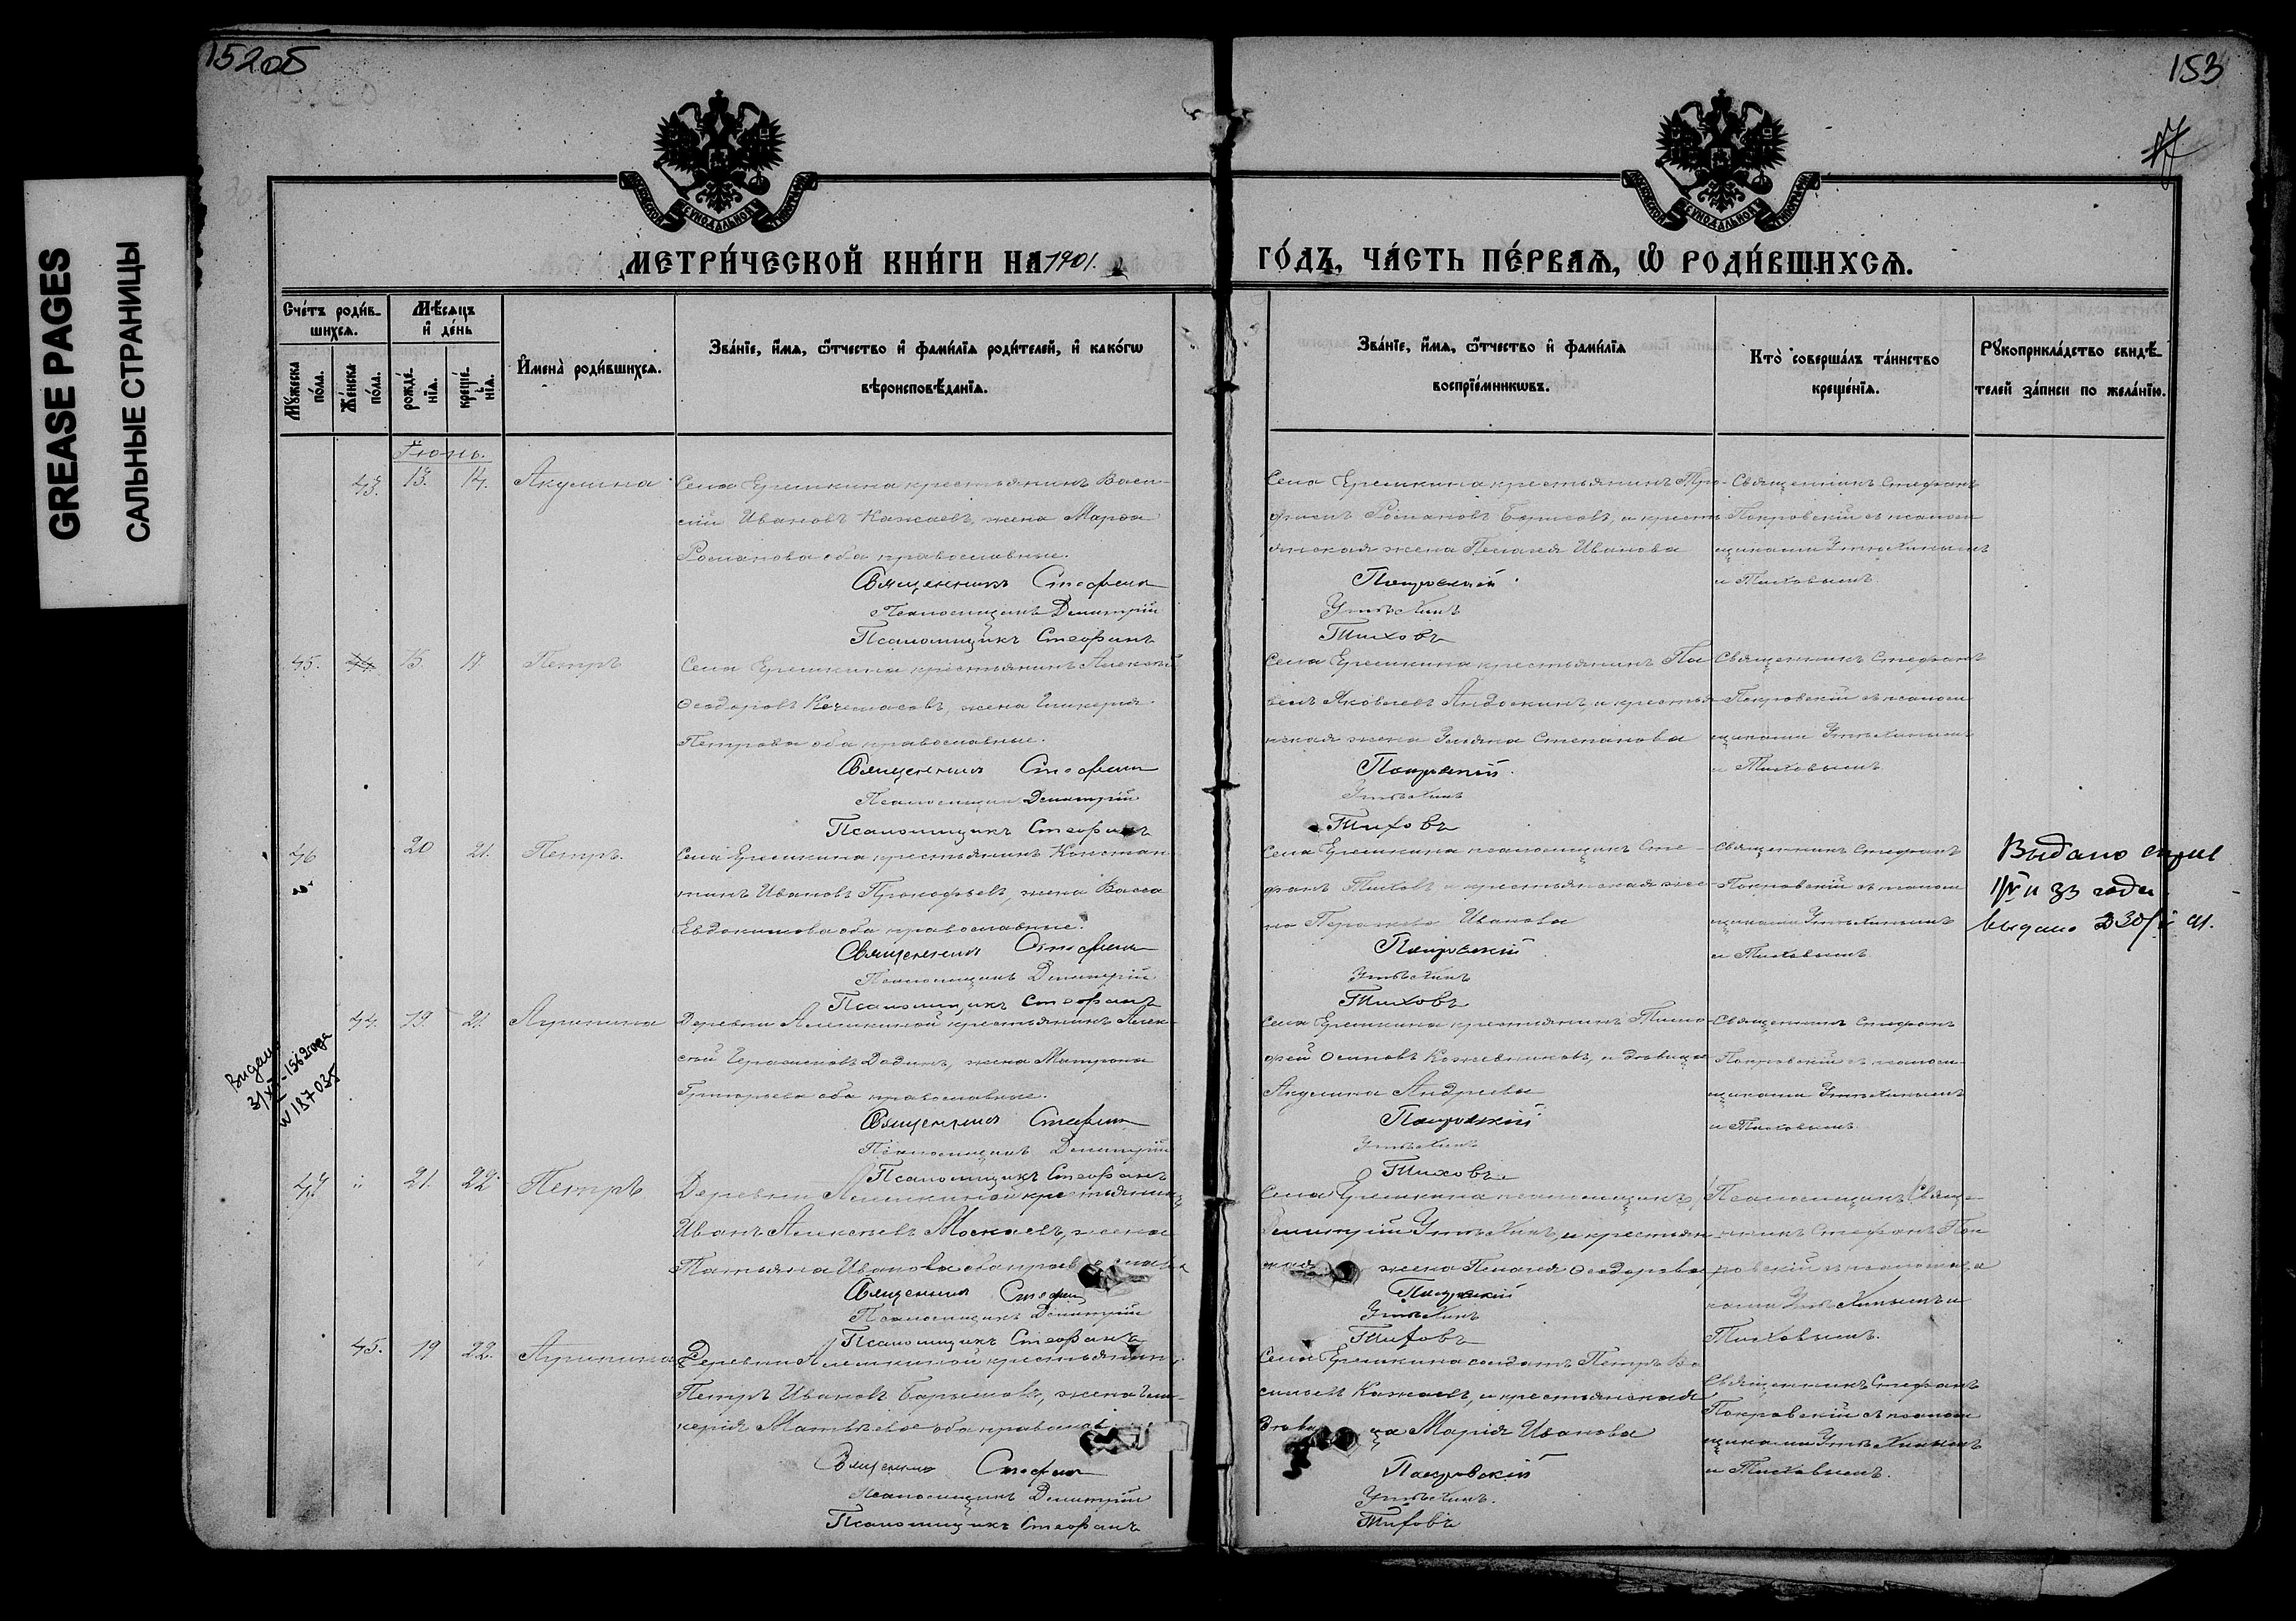 GREASE PAGES
САЛЬНЫЕ СТРАНИЦЫ
152об
153
17
МЕТРИ́ЧЕСКОЙ КНИ́ГИ НА 1901.
ГО́ДЪ, ЧА́СТЬ ПЕ́РВАѦ, Ѡ РОДИ́ВШИХСѦ.
Сче́тъ роди́в-
шихсѧ.
Мѣ́сѧцъ
и҆ де́нь
Мꙋ́жеска
по́ла.
Же́нска
по́ла.
рожде́-
нїѧ.
креще́-
нїѧ.
И҆мена̀ роди́вшихсѧ.
Зва́нїе, и҆́мѧ, ѻ҆́тчество и҆ фами́лїѧ роди́телей, и҆ како́гѡ
вѣроисповѣ́данїѧ.
Зва́нїе, и҆́мѧ, ѻ҆́тчество и҆ фами́лїѧ
воспрїе́мникѡвъ.
Кто̀ соверша́лъ та́инство
креще́нїѧ.
Рꙋкоприкла́дство свидѣ́-
телей за́писи по жела́нїю.
Іюнь.
43. 13. 14. Акулина
Села Ерешкина крестьянинъ Васи-
лій Ивановъ Кажаевъ, жена Марѳа
Романова оба православные.
Священникъ Стефанъ
Псаломщикъ Димитрій
Псаломщикъ Стефанъ
Села Ерешкина крестьянинъ Тро-
фимъ Романовъ Борисовъ, и кресть
янская жена Пелагея Иванова
Покровскій
Утѣхинъ
Тиховъ
Священникъ Стефанъ
Покровскій съ псалом
щиками Утѣхинымъ
и Тиховымъ
45. 44 15. 17 Петръ
Села Ерешкина крестьянинъ Алексѣй
Ѳеодоровъ Кочемасовъ, жена Гликерія
Петрова оба православные.
Священникъ Стефанъ
Псаломщикъ Димитрій
Псаломщикъ Стефанъ
Села Ерешкина крестьянинъ Па
велъ Яковлевъ Андоскинъ, и крестья
нская жена Ульяна Степанова
Покровскій
Утѣхинъ
Тиховъ
Священникъ Стефанъ
Покровскій съ псалом
щиками Утѣхинымъ
и Тиховымъ
46 20 21. Петръ.
Села Ерешкина крестьянинъ Констан
тинъ Ивановъ Прокофьевъ, жена Васса
Евдокимова оба православные.
Священникъ Стефанъ
Псаломщикъ Димитрій
Псаломщикъ Стефанъ
Села Ерешкина псаломщикъ Сте-
фанъ Тиховъ и крестьянская же-
на Иванова
Покровскій
Утѣхинъ
Тиховъ
Священникъ Стефанъ
Покровскій съ псалом
щиками Утѣхинымъ
и Тиховымъ
Выдано
33 года
выдано
44. 19 21. Агрипина
Деревни Алешкиной крестьянинъ Алек-
сѣй Герасимовъ Додинъ, жена Матрона
Григорьева оба православные.
Священникъ Стефанъ
Псаломщикъ Димитрій
Псаломщикъ Стефанъ
Села Ерешкина крестьянинъ Тимо-
фей Осиповъ Кожевниковъ, и дѣвица
Акулина Андреева
Покровскій
Утѣхинъ
Тиховъ
Священникъ Стефанъ
Покровскій съ псалом-
щиками Утѣхинымъ
и Тиховымъ
Выдано
31/XII-1962 года
№ 187035
47 " 21. 22 Петръ
Деревни Алешкиной крестьянинъ
Иванъ Алексѣевъ Москаевъ, жена
Татьяна Иванова оба правосл
Священникъ Стефанъ
Псаломщикъ Димитрій
Псаломщикъ Стефанъ
Села Ерешкина псаломщикъ
Димитрій Утѣхинъ, и крестьян
ская жена Пелагея Ѳеодорова
Покровскій
Утѣхинъ
Тиховъ
Псаломщикъ Свяще-
нникъ Стефанъ Пок
ровскій съ псаломщи
ками Утѣхинымъ и
Тиховымъ.
45. 19 22. Агрипина
Деревни Алешкиной крестьянинъ
Петръ Ивановъ Барышовъ, жена Гли-
керія Матвѣева оба правосл
Священникъ Стефанъ
Псаломщикъ Димитрій
Псаломщикъ Стефанъ
Села Ерешкина солдатъ Петръ Ва
сильевъ Кажаевъ, и крестьянская
дѣви ца Марія Иванова
Покровскій
Утѣхинъ.
Тиховъ
Священникъ Стефанъ
Покровскій съ псалом
щиками Утѣхинымъ
и Тиховымъ.